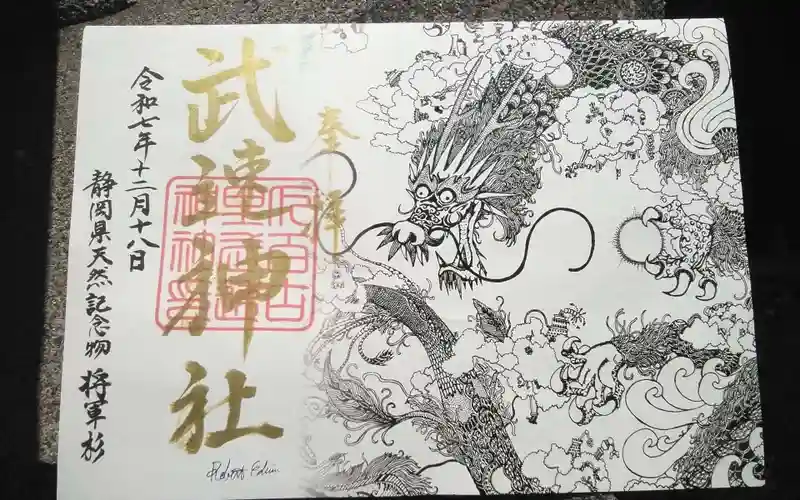 奉拝
武速神社
令和七年十二月十八日
静岡県天然記念物 将軍杉